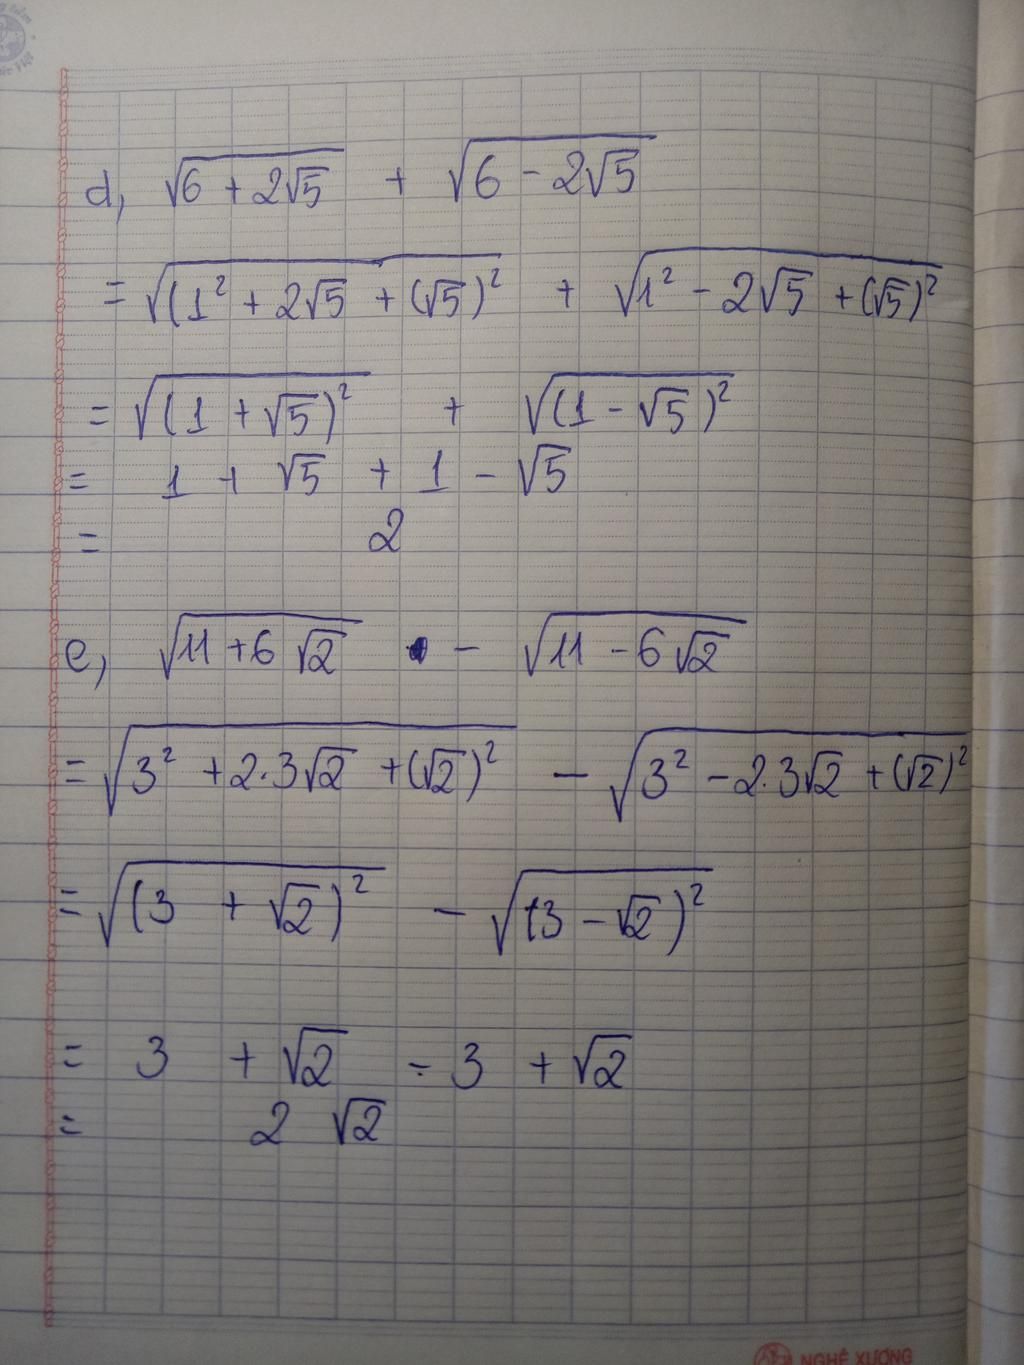 d, √6 + 2√5 + √6 - 2√5
= √(1² + 2√5 + (√5)² + √1² - 2√5 + (√5)²
= √(1 + √5)² + √(1 - √5)²
= 1 + √5 + 1 - √5
= 2
e, √11 + 6√2 - √11 - 6√2
= √3² + 2.3√2 + (√2)² - √3² - 2.3√2 + (√2)²
= √(3 + √2)² - √(3 - √2)²
= 3 + √2 - 3 + √2
= 2 √2
NGHÊ XƯƠNG